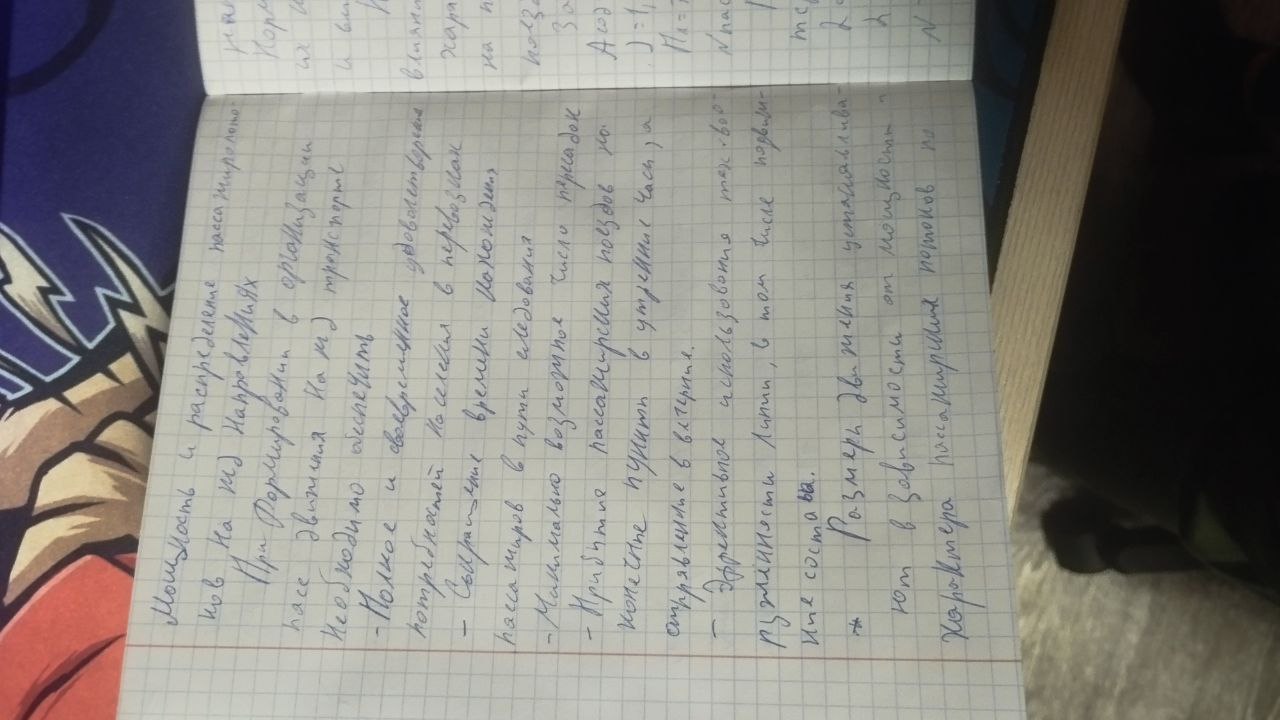 Мощность и распределение пассажиропото-
ков на жд направлениях
При формировании в организации
пасс движения на жд транспорте
необходимо обеспечить
- Полное и своевременное удовлетворения
потребностей населения в перевозках
- Сокращение времени нахождения
пассажиров в пути следования
- Минимально возможное число пересадок
- Прибытие пассажирских поездов на
конечные пункты в утренние часы, а
отправление в вечерние.
- Эффективное использования
лении, в том числе подвиж-
ные состава.
* Размеры движения устанавлива-
ют в зависимости от мощности и
характера пассажирских потоков по
Норм
их
и
влияни
хара
на п
J = 1,
N пас